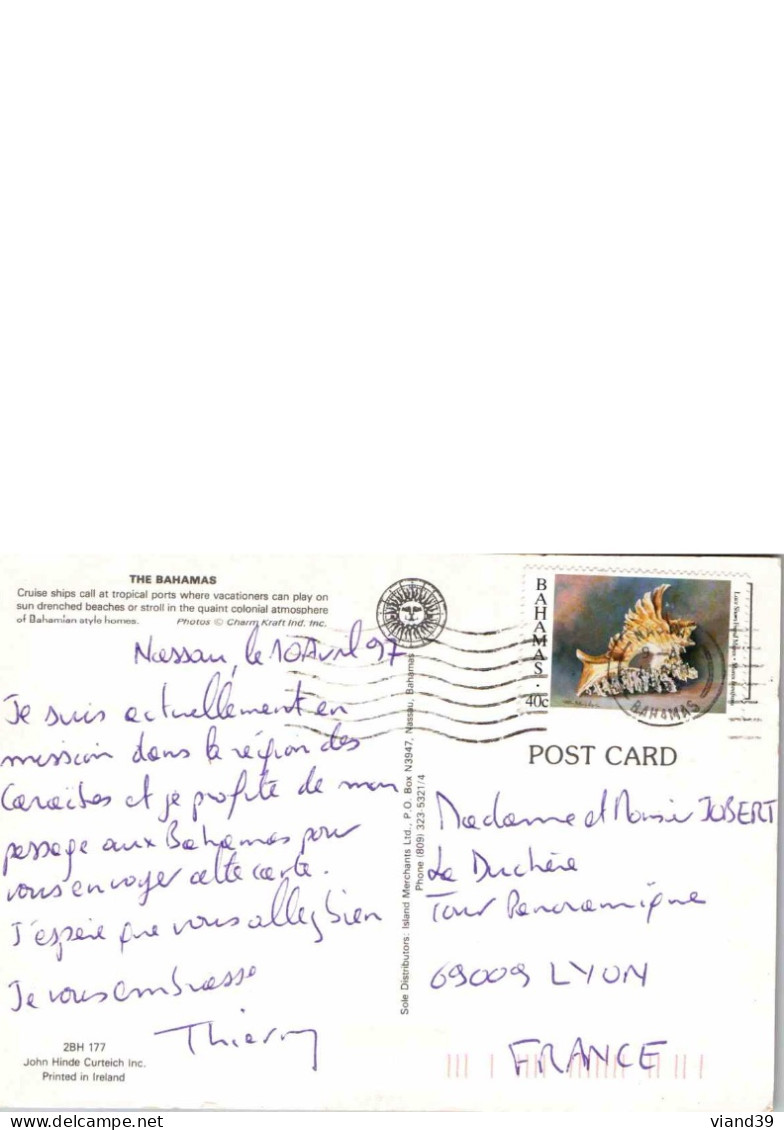 THE BAHAMAS
Cruise ships call at tropical ports where vacationers can play on
sun drenched beaches or stroll in the quaint colonial atmosphere
of Bahamian style homes. Photos © Charm Kraft Ind. Inc.
Nassau, le 10 Avril 97
Je suis actuellement en
mission dans la région des
Caraïbes et je profite de mon
passage aux Bahamas pour
vous envoyer cette carte.
J'espère que vous allez bien
Je vous embrasse
Thierry
2BH 177
John Hinde Curteich Inc.
Printed in Ireland
Sole Distributors: Island Merchants Ltd., P.O. Box N3947, Nassau, Bahamas
Phone (809) 323-5321/4
BAHAMAS
40c
BAHAMAS
POST CARD
Madame et Monsieur JOBERT
La Duchère
Tour Panoramique
69009 LYON
FRANCE
delcampe.net
viand39